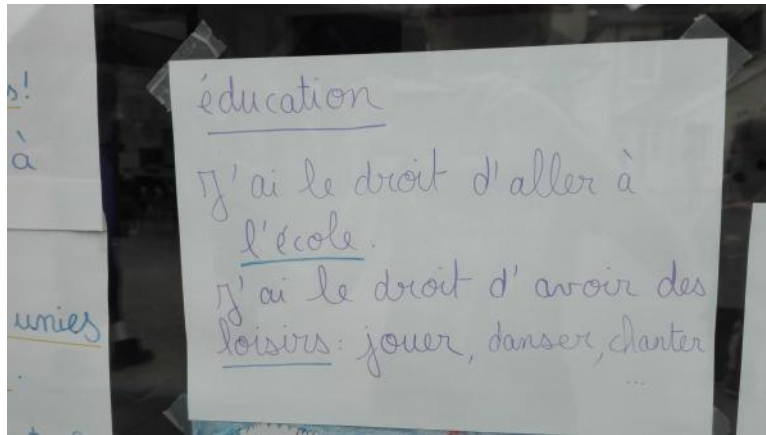 s!
à
unies
.
éducation
J'ai le droit d'aller à
l'école.
J'ai le droit d'avoir des
loisirs : jouer, danser, chanter
...